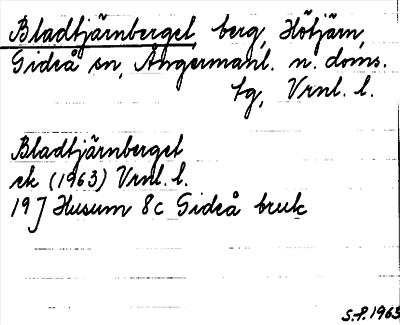 Bladtjärnberget berg, Hötjärn,
Gideå sn, Ångermanl. n. doms.
tg, Vrnl. l.
Bladtjärnberget
ek (1963) Vrnl. l.
19J Husum 8c Gideå bruk
S.P. 1963